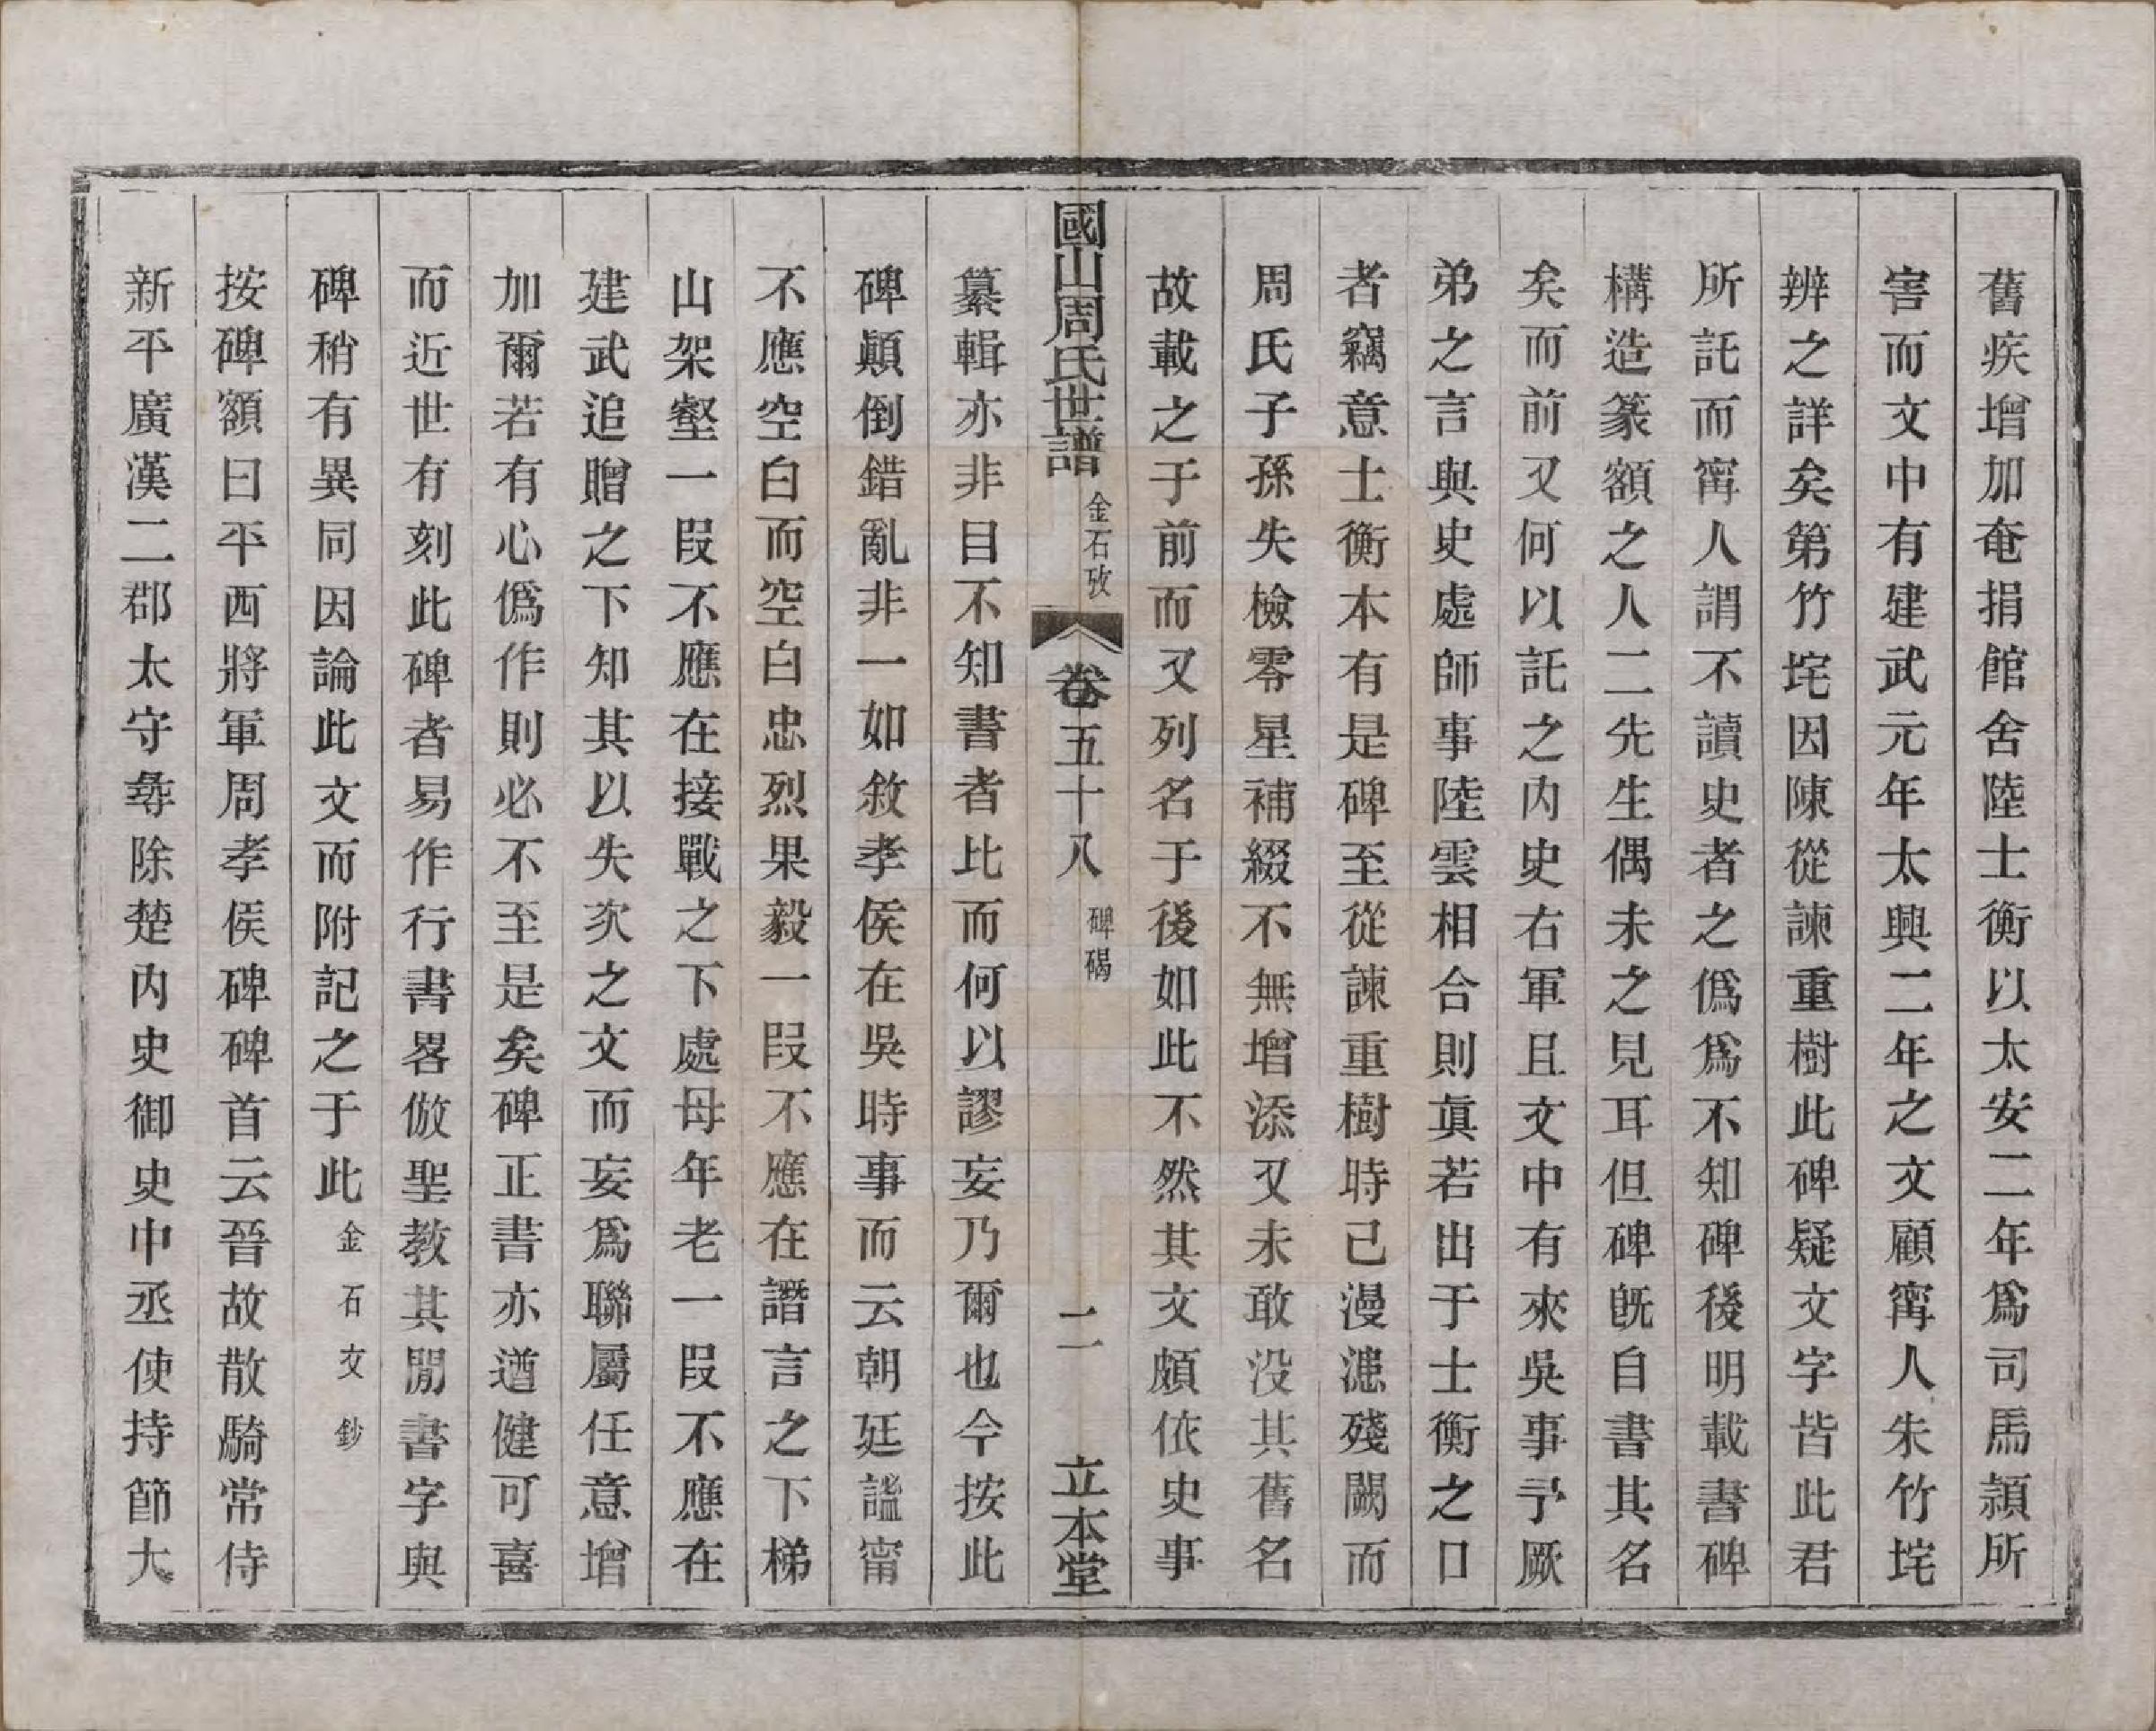 舊疾增加奄捐館舍陸士衡以太安二年爲司馬穎所
害而文中有建武元年太興二年之文顧甯人朱竹垞
辨之詳矣第竹垞因陳從諫重樹此碑疑文字皆此君
所託而甯人謂不讀史者之僞爲不知碑後明載書碑
構造篆額之人二先生偶未之見耳但碑旣自書其名
矣而前又何以託之内史右軍且文中有來吳事予厥
弟之言與史處師事陸雲相合則眞若出于士衡之口
者竊意士衡本有是碑至從諫重樹時已漫漶殘闕而
周氏子孫失檢零星補綴不無增添又未敢没其舊名
故載之于前而又列名于後如此不然其文頗依史事
國山周氏世譜 金石攷 卷五十八 碑碣 二 立本堂
纂輯亦非目不知書者比而何以謬妄乃爾也今按此
碑顚倒錯亂非一如敘孝侯在吳時事而云朝廷謚甯
不應空白而空白忠烈果毅一段不應在譖言之下梯
山架壑一段不應在接戰之下處母年老一段不應在
建武追贈之下知其以失次之文而妄爲聯屬任意增
加爾若有心僞作則必不至是矣碑正書亦遒健可喜
而近世有刻此碑者易作行書畧倣聖教其閒書字與
碑稍有異同因論此文而附記之于此 金石文鈔
按碑額曰平西將軍周孝侯碑碑首云晉故散騎常侍
新平廣漢二郡太守㝷除楚内史御史中丞使持節大